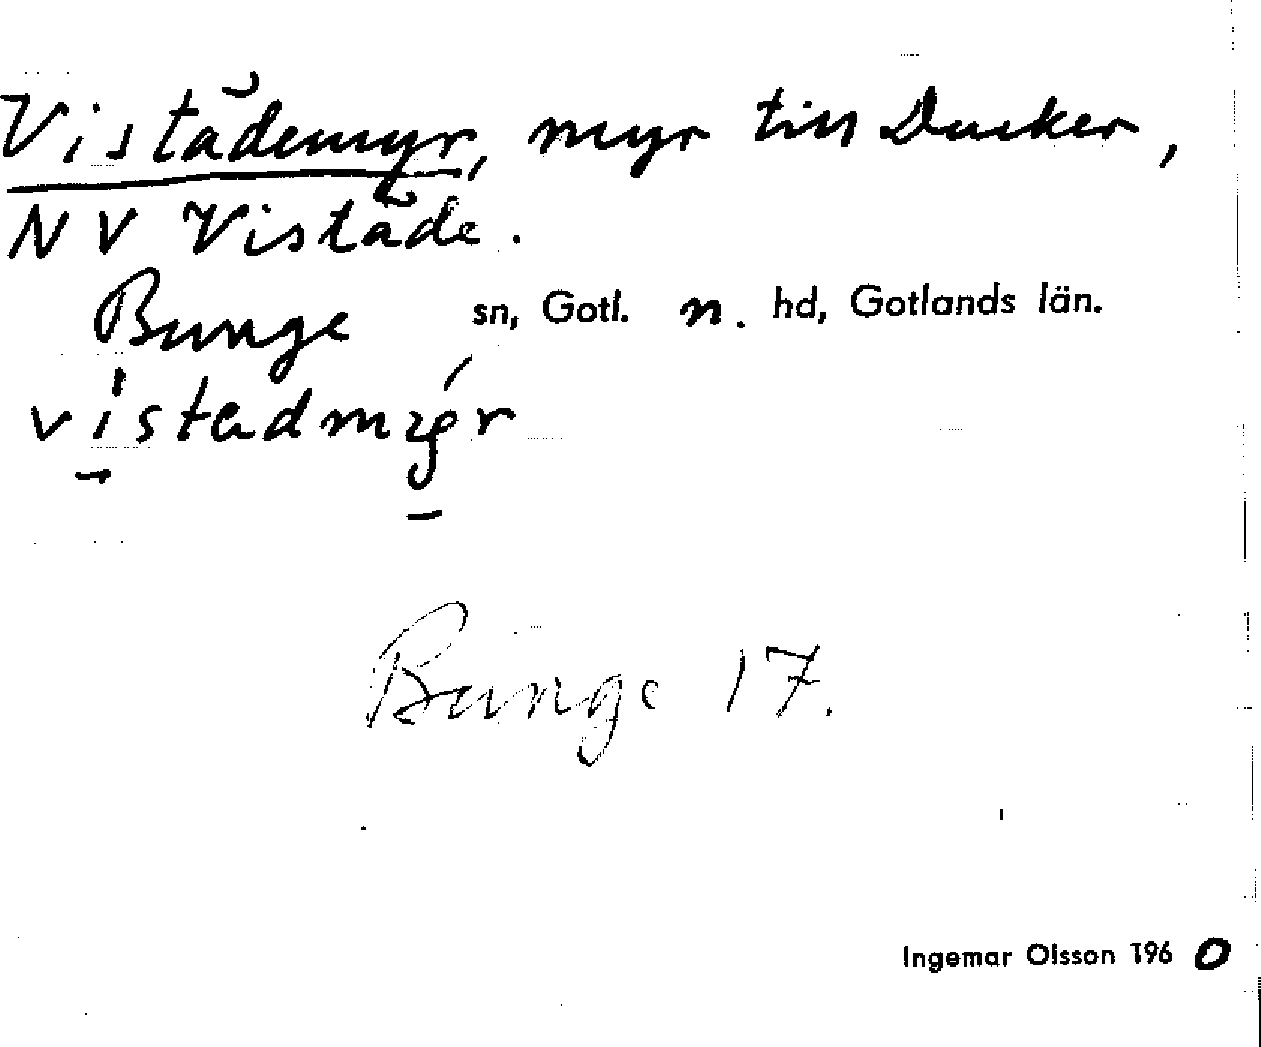 Vistādemyr, myr till Ducker,
NV Vistāde.
Bunge sn, Gotl. n. hd, Gotlands län.
vistadmyr
Bunge 17.
Ingemar Olsson 1960